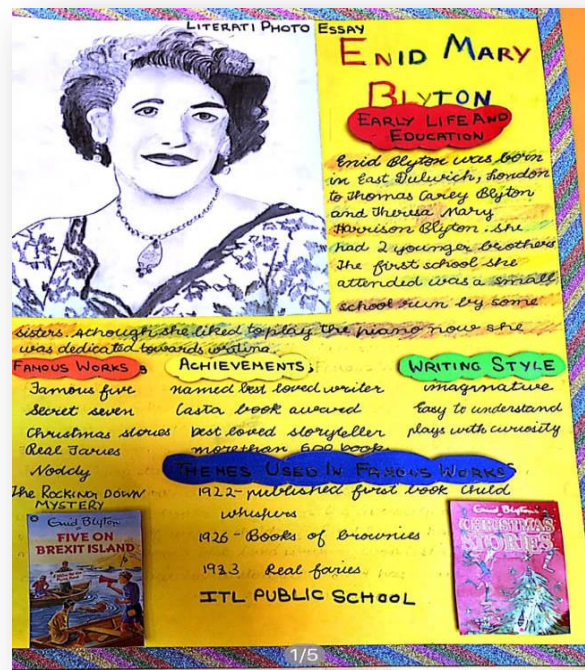 LITERATI PHOTO ESSAY
ENID MARY
BLYTON
EARLY LIFE AND
EDUCATION
Enid Blyton was born
in East Dulwich, London
to Thomas Carey Blyton
and Theresa Mary
Harrison Blyton. she
had 2 younger brothers
The first school she
attended was a small
school run by some
sisters. Although she liked to play the piano now she
was dedicated towards writing.
FAMOUS WORKS
Famous five
Secret seven
Christmas stories
Real Faries
Noddy
The ROCKING DOWN
MYSTERY
ACHIEVEMENTS;
named best loved writer
Casta book award
best loved storyteller
more than 600 book
WRITING STYLE
imaginative
Easy to understand
plays with curiosity
THEMES USED IN FAMOUS WORKS
1922- published first book Child
whispers
1926- Books of brownies
1923 Real faries
ITL PUBLIC SCHOOL
Enid Blyton
FIVE ON
BREXIT ISLAND
Enid Blyton's
CHRISTMAS
STORIES
1/5